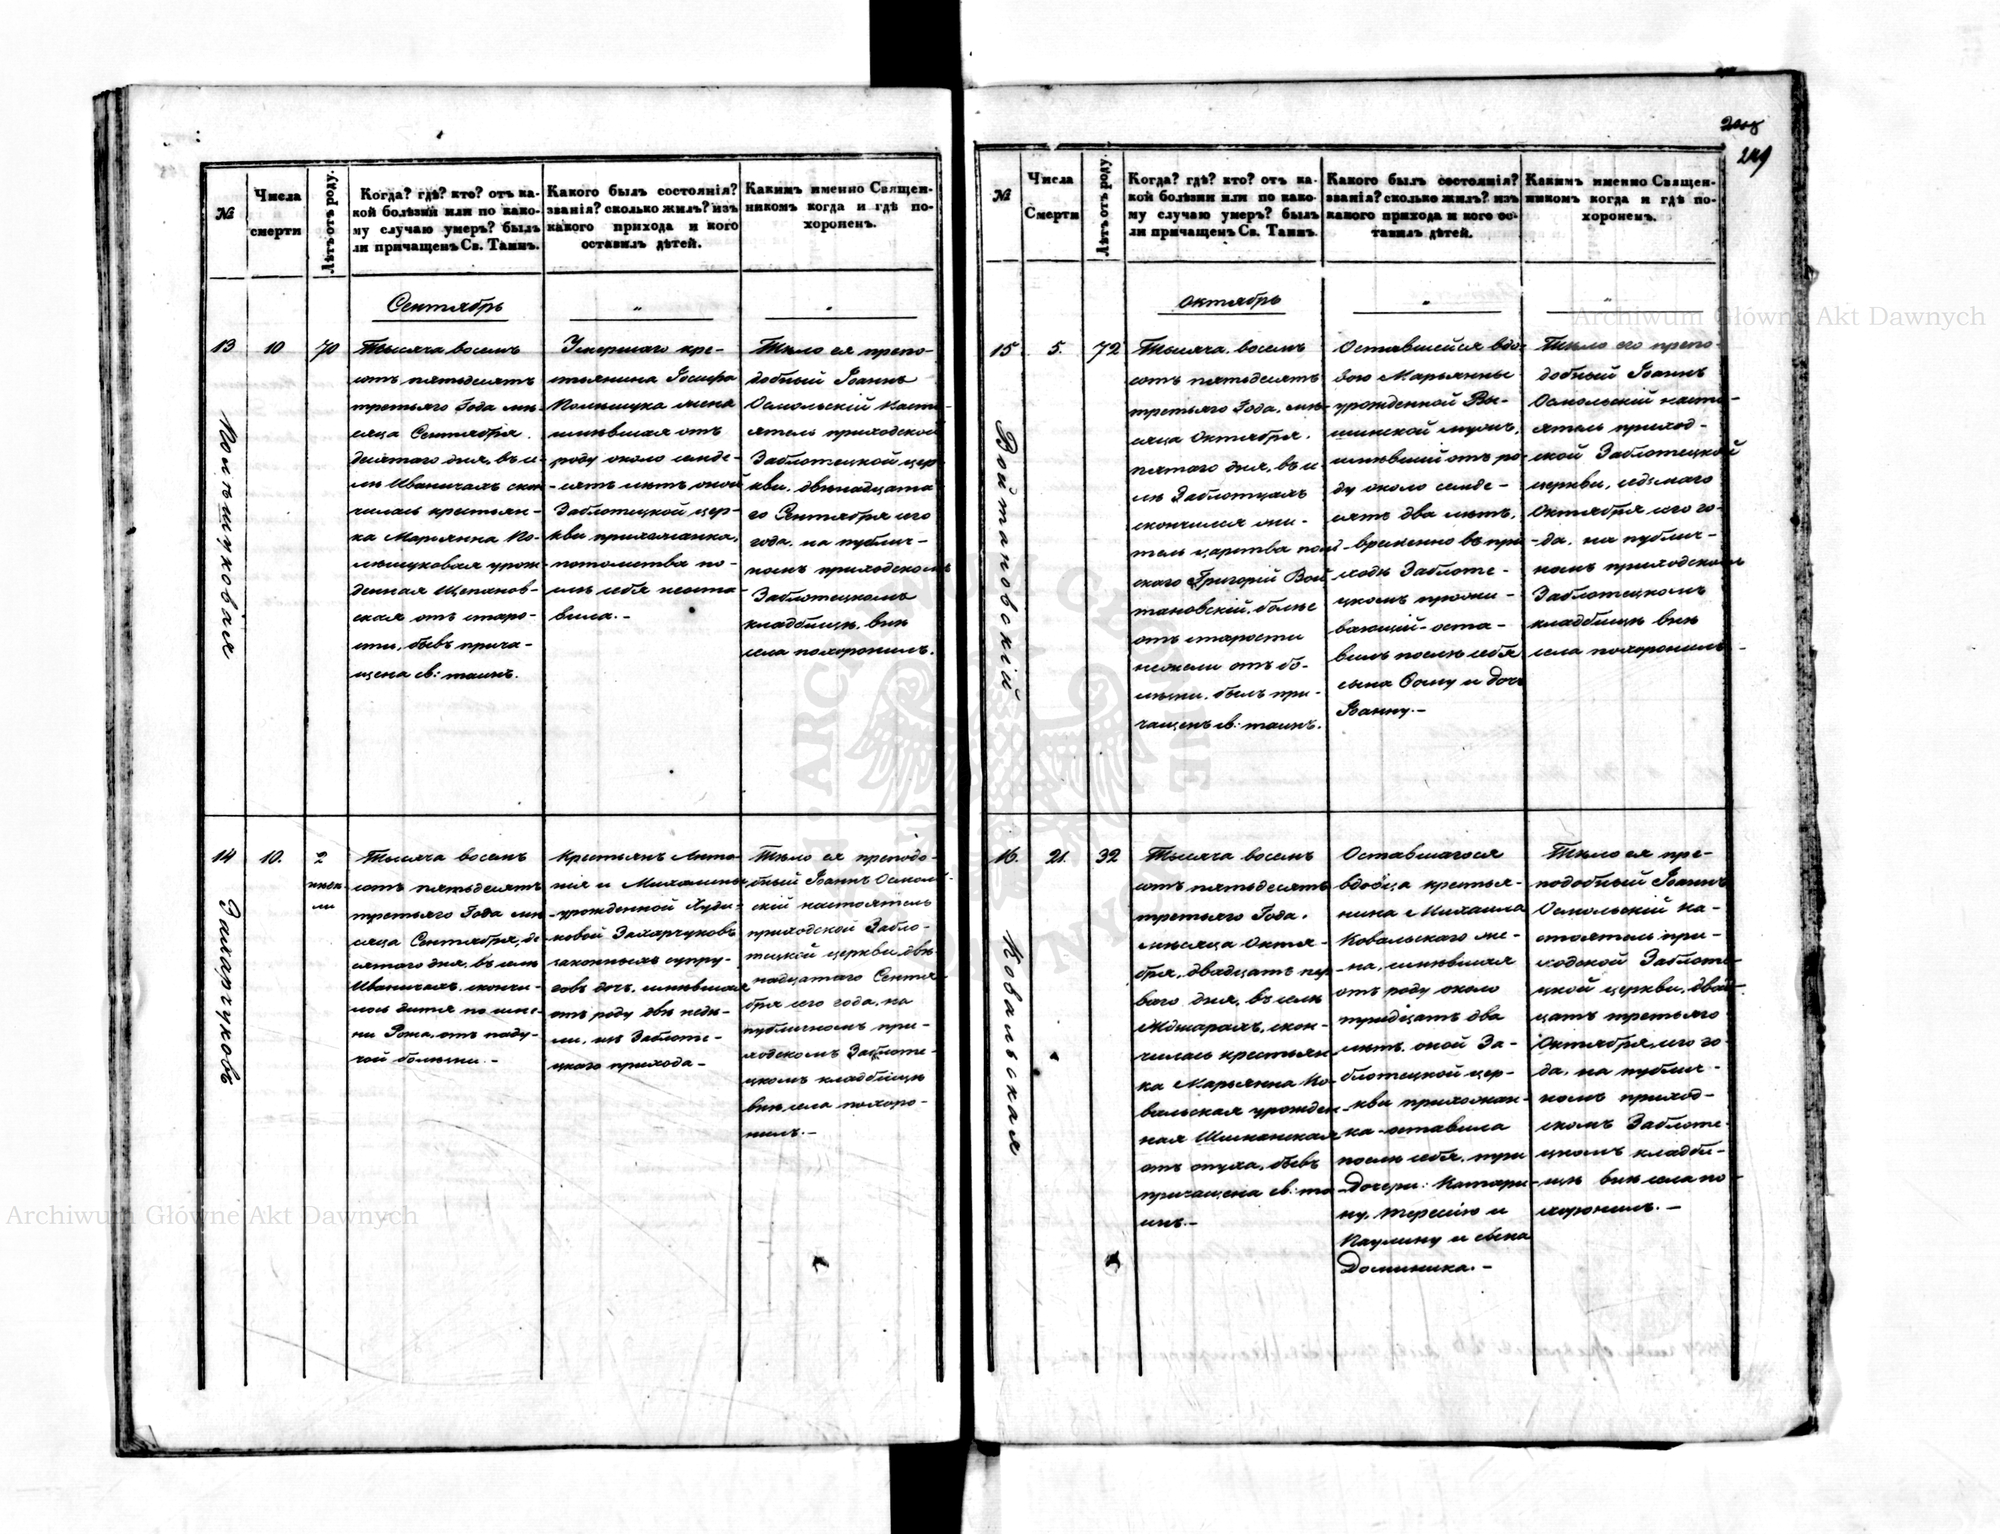 №
Числа
смерти
Лѣтъ отъ роду.
Когда? гдѣ? кто? отъ ка-
кой болѣзни или по како-
му случаю умеръ? былъ
ли причащенъ Св. Таинъ.
Какого былъ состоянія?
званія? сколько жилъ? изъ
какого прихода и кого
оставилъ дѣтей.
Какимъ именно Священ-
никомъ когда и гдѣ по-
хороненъ.
Сентябрь
"
"
13
10
70
Польщуковая
Тысяча восемъ
сотъ пятьдесятъ
третьяго Года мѣ-
сяца Сентября
десятаго дня, въ се-
лѣ Иваничахъ скон
чилась крестьян-
ка Марьянна По-
льщуковая урож
денная Щепанов-
ская отъ старо-
сти, бывъ прича-
щена св: таинъ.
Умершаго кре-
стьянина Іосифа
Польщука жена
имѣвшая отъ
роду около семде-
-сятъ лѣтъ оной
Заблотецкой цер-
кви прихожанка,
потомства по-
слѣ себя неоста
вила.-
Тѣло ея препо-
добный Іоаннъ
Осмольскій насто-
ятель приходской
Заблотецкой цер
кви, двѣнадцата
го Сентября сего
года, на публич-
номъ приходскомъ
Заблотецкомъ
кладбищѣ, внѣ
села похоронилъ.
14
10.
2
недѣ-
ли
Захарчуковъ
Тысяча восемъ
сотъ пятьдесятъ
третьяго Года мѣ
сяца Сентября, де
сятаго дня, въ селѣ
Иваничахъ, скончи-
лось дитя по име-
ни Рожа, отъ паду-
чой болѣзни.-
Крестьянъ Анто-
нія и Михалины
урожденной Худи-
ковой Захарчуковъ
законныхъ супру-
говъ дочь, имѣвшая
отъ роду двѣ недѣ-
ли, изъ Заблоте-
цкаго прихода-
Тѣло ея преподо-
бный Іоаннъ Осмоль
скій настоятель
приходской Забло-
тецкой церкви, двѣ
надцатаго Сентя
бря сего года, на
публичномъ при-
ходскомъ Заблоте-
цкомъ кладбищѣ
внѣ села похоро-
нилъ.-
249
№
Числа
Смерти
Лѣтъ отъ роду.
Когда? гдѣ? кто? отъ ка-
кой болѣзни или по како-
му случаю умеръ? былъ
ли причащенъ Св. Таинъ.
Какого былъ состоянія?
званія? сколько жилъ? изъ
какого прихода и кого ос-
тавилъ дѣтей.
Какимъ именно Священ-
никомъ когда и гдѣ по-
хороненъ.
Октябрь
"
"
15
5.
72
Войтановскій
Тысяча восемъ
сотъ пятьдесятъ
третьяго Года, мѣ-
сяца Октября,
пятаго дня, въ се
лѣ Заблотцахъ
скончился жи-
тель царства поль
скаго Григорій Вой
тановскій, болѣе
отъ старости
нежели отъ бо-
лѣзни, былъ при-
чащенъ св: таинъ.
Оставшейся вдо-
вою Марьянны
урожденной Вы-
шинской мужъ,
имѣвшій отъ ро-
ду около семде-
сятъ два лѣтъ,
временно въ при
ходѣ Заблоте-
цкомъ прожи-
вающій-оста-
вилъ послѣ себя
сына Фому и дочь
Іоанну.-
Тѣло его препо-
добный Іоаннъ
Осмольскій насто-
ятель приход-
ской Заблотецкой
церкви, седьмаго
Октября сего го-
-да, на публич-
номъ приходскомъ
Заблотецкомъ
кладбищѣ внѣ
села похоронилъ-
16.
21.
32
Ковальская
Тысяча восемъ
сотъ пятьдесятъ
третьяго Года,
мѣсяца Октя-
бря, двадцать пер
ваго дня, въ селѣ
Мдшарахъ, скон-
чилась крестьян
ка Марьянна Ко-
вальская урожден-
ная Шиканская
отъ опуха, бывъ
причащена св: та
инъ.-
Оставшагося
вдовца крестья-
нина Михаила
Ковальскаго же-
на, имѣвшая
отъ роду около
тридцать два
лѣтъ оной За-
блотецкой цер-
кви прихожан-
ка оставила
послѣ себя, три
дочери: Катари-
ну, Терезію и
Паулину и сына
Доминика.-
Тѣло ея пре-
подобный Іоаннъ
Осмольскій на-
стоятель при-
ходской Заблоте-
цкой церкви, двад-
цать третьяго
Октября, сего го-
да, на публич-
номъ приход-
скомъ Заблоте-
цкомъ кладби-
щѣ внѣ села по-
хоронилъ.-
Archiwum Główne Akt Dawnych
Archiwum Główne Akt Dawnych